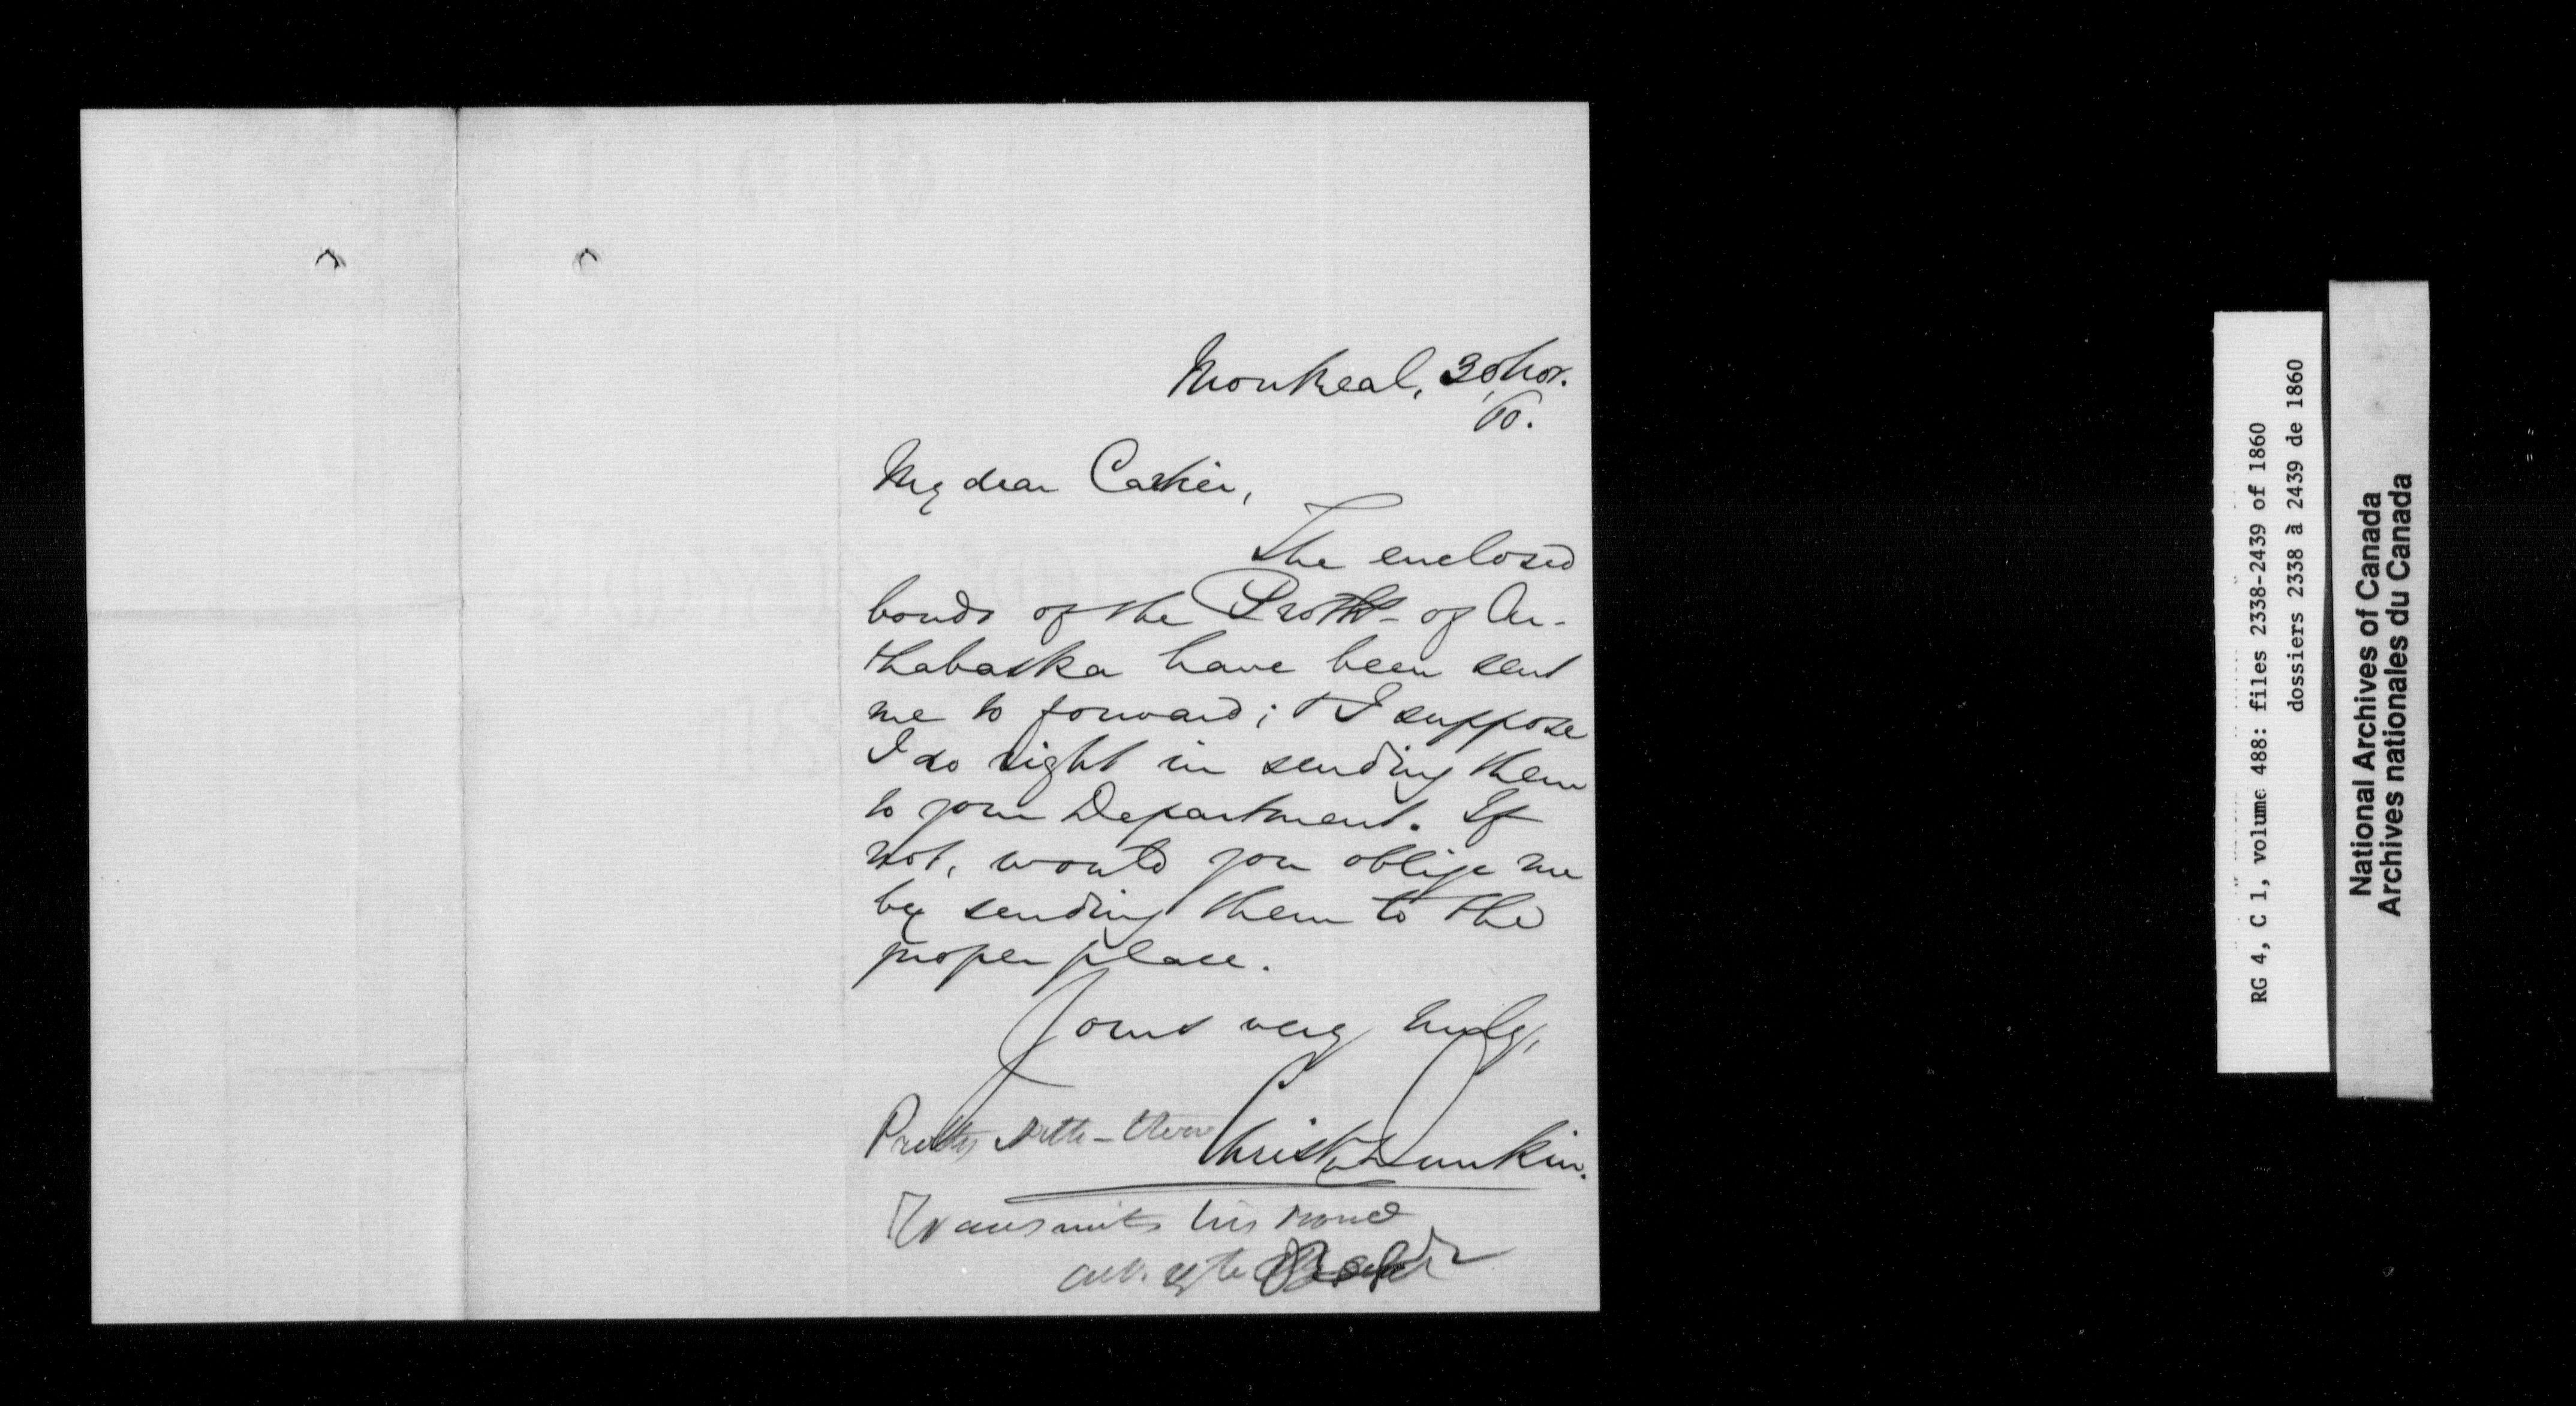 Montreal, 30 Nov.
/60.
My dear Cartier,
The enclosed
bonds of the Proth- of Ar-
thabaska have been sent
me to forward; & I suppose
I do right in sending them
to your Department. If
not, would you oblige me
by sending them to the
proper place.
Yours very truly,
Christ. Dunkin.
Prothy Artha-
Transmits his bond
RG 4, C 1, volume 488: files 2338-2439 of 1860
dossiers 2338 à 2439 de 1860
National Archives of Canada
Archives nationales du Canada